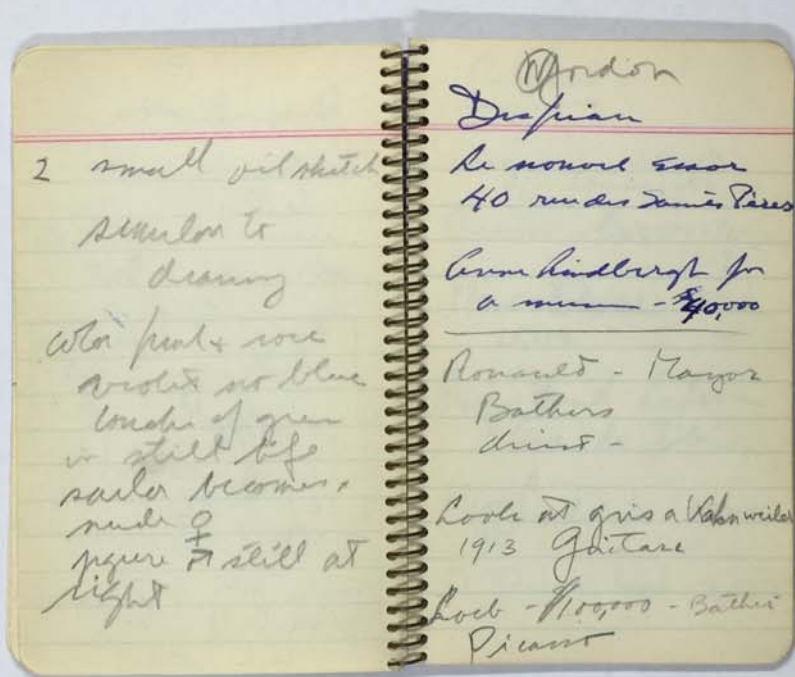 2 small oil sketch
similar to
drawing
color pink & rose
violet no blue
touche of green
in still life
sailor becomes
nude ♀
figure ♂ still at
right
Despiau
40 rue des Saints Pères
Anne Lindbergh for
a museum - $40,000
- Mayor
Bathers
Look at gris a Kahnweiler
1913 Guitare
Loeb - $100,000 - Bather
Picasso